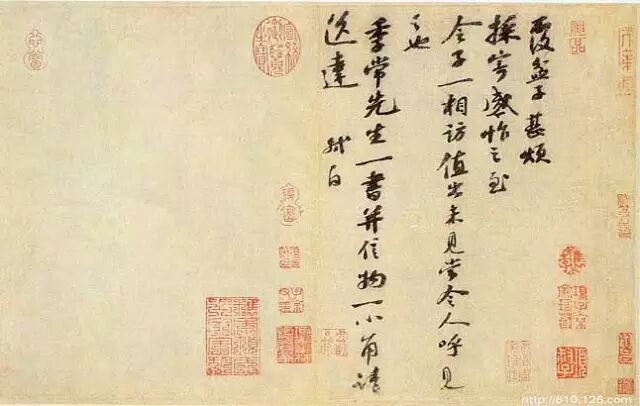 覆盆子甚煩
採寄感怍之至
令子一相訪值出未見當令人呼見
之也
季常先生一書并信物一小角請
送達 軾白
http://610.126.com